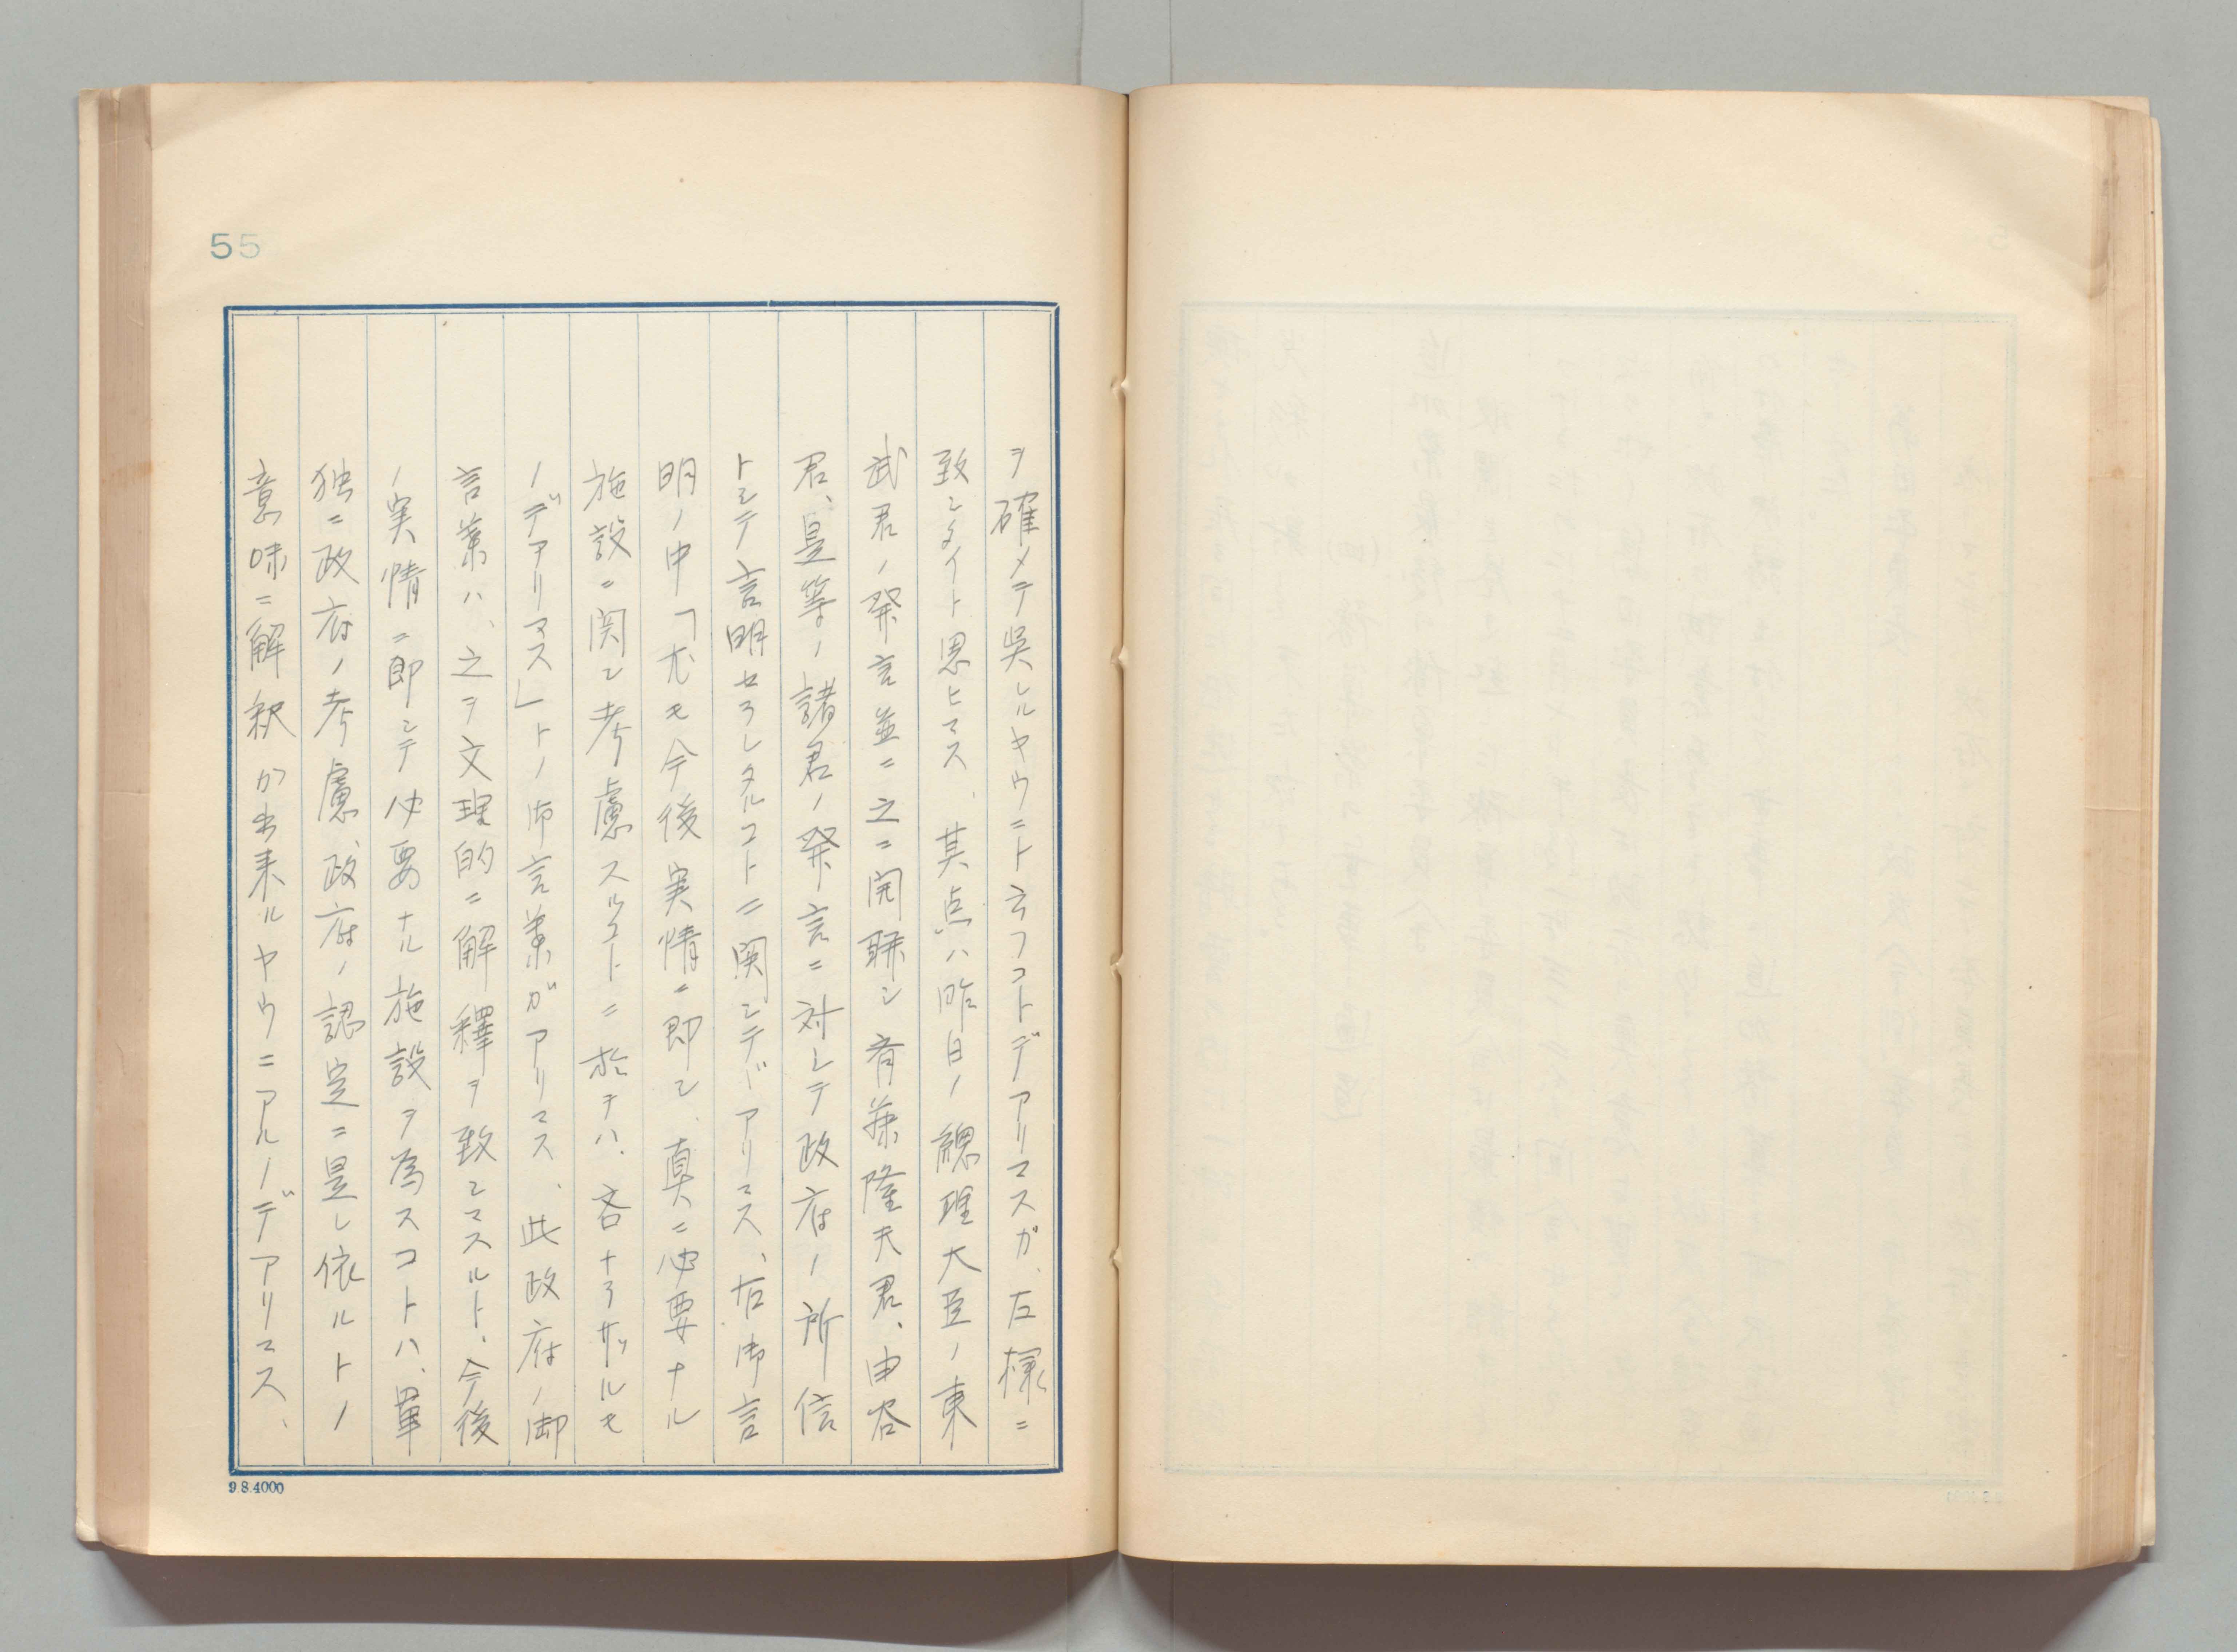 55
ヲ確メテ呉レルヤウニト云フコトデアリマスガ、左様ニ
致シタイト思ヒマス、其点ハ昨日ノ總理大臣ノ東
武君ノ発言並ニ之ニ関聯シ斉藤隆夫君、由谷
君、是等ノ諸君ノ発言ニ対シテ政府ノ所信
トシテ言明セラレタルコトニ関シテデアリマス、右御言
明ノ中「尤モ今後実情ニ即シ、真ニ必要ナル
施設ニ関シ考慮スルコトニ於テハ、吝ナラザルモ
ノデアリマス」トノ御言葉ガアリマス、此政府ノ御
言葉ハ、之ヲ文理的ニ解釋ヲ致シマスルト、今後
ノ実情ニ即シテ必要ナル施設ヲ為スコトハ、単
独ニ政府ノ考慮、政府ノ認定ニ是レ依ルトノ
意味ニ解釈ガ出来ルヤウニアルノデアリマス、
9.8.4000